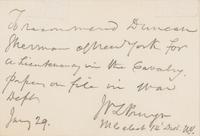 To recommend Duncan
Sherman of New York for
a Lieutenancy in the Cavalry.
Papers on file in War
Dept.
Jany 29.
M C elect 12 Dist.